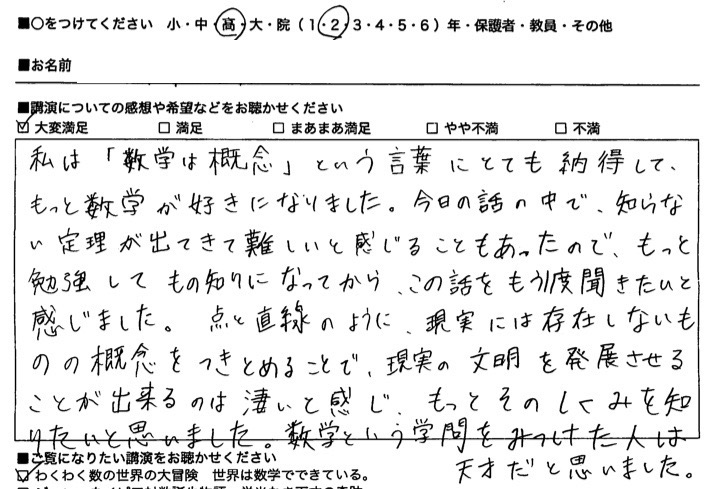 ■○をつけてください 小・中・高・大・院（1・2・3・4・5・6）年・保護者・教員・その他
■お名前
■講演についての感想や希望などをお聴かせください
☑ 大変満足 □ 満足 □ まあまあ満足 □ やや不満 □ 不満
私は「数学は概念」という言葉にとても納得して、
もっと数学が好きになりました。今日の話の中で、知らな
い定理が出てきて難しいと感じることもあったので、もっと
勉強してもの知りになってから、この話をもう1度聞きたいと
感じました。点と直線のように、現実には存在しないも
のの概念をつきとめることで、現実の文明を発展させる
ことが出来るのは凄いと感じ、もっとそのしくみを知
りたいと思いました。数学という学問をみつけた人は
天才だと思いました。
■ご覧になりたい講演をお聴かせください
☑ わくわく数の世界の大冒険 世界は数学でできている。